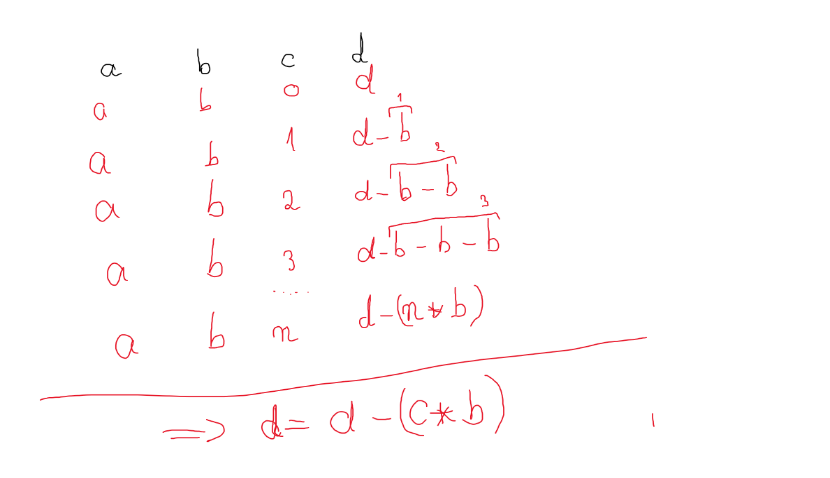 a b c d
a b 0 d
1
a b 1 d-b
2
a b 2 d-b-b
3
a b 3 d-b-b-b
.....
a b n d-(n*b)
=> d= d-(c*b)